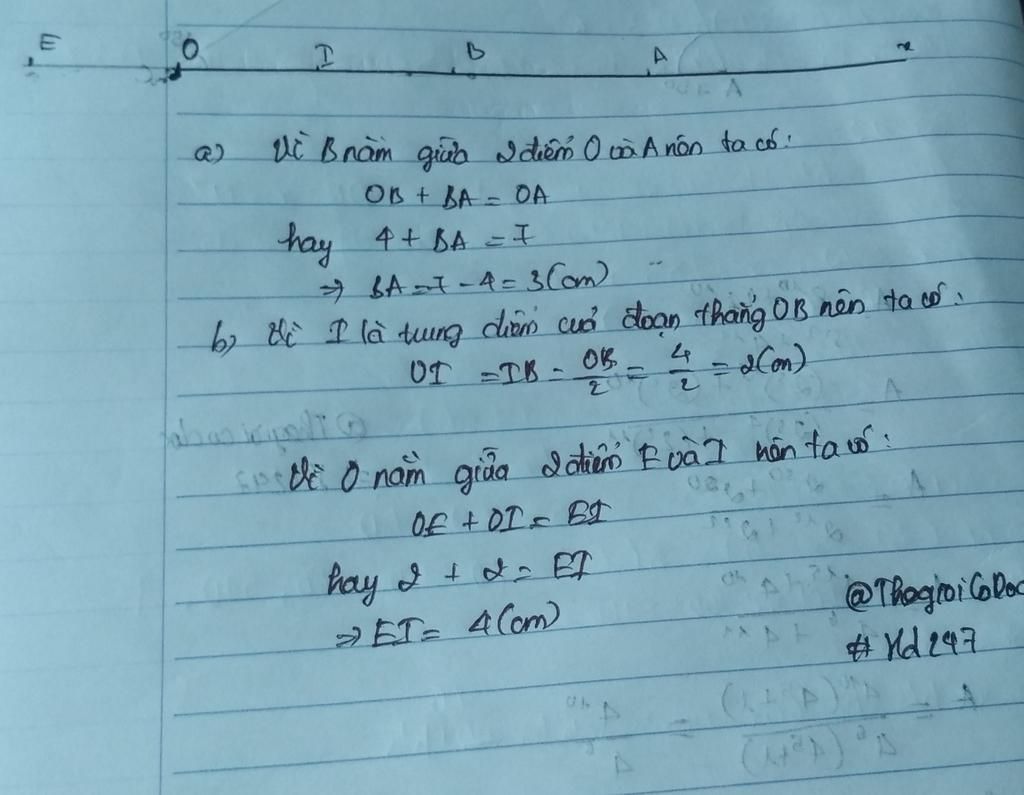 E O I B A x
a) Vì B nằm giữa 2 điểm O và A nên ta có:
OB + BA = OA
hay 4 + BA = 7
⇒ BA = 7 - 4 = 3(cm)
b) Vì I là trung điểm của đoạn thẳng OB nên ta có:
OI = IB = OB/2 = 4/2 = 2(cm)
Vì O nằm giữa 2 điểm E và I nên ta có:
OE + OI = EI
hay 2 + 2 = EI
⇒ EI = 4(cm)
@ThogioiCoDoc
# Hd247